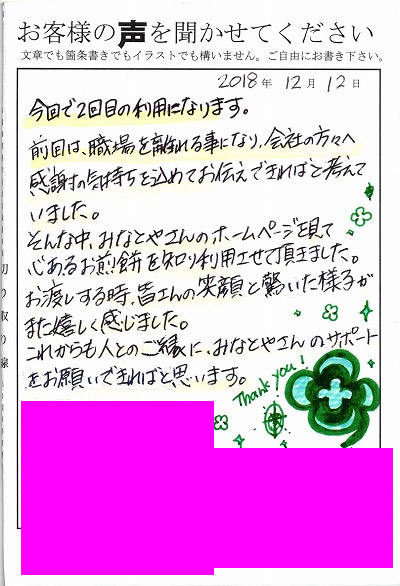 お客様の声を聞かせてください
文章でも箇条書きでもイラストでも構いません。ご自由にお書き下さい。
2018年 12月 12日
今回で2回目の利用になります。
前回は、職場を離れる事になり、会社の方々へ
感謝の気持ちを込めてお伝えできればと考えて
いました。
そんな中、みなとやさんのホームページを見て
心あるお煎餅を知り利用させて頂きました。
お渡しする時、皆さんの笑顔と驚いた様子が
また嬉しく感じました。
これからも人とのご縁に、みなとやさんのサポート
をお願いできればと思います。
Thank you!
切り取り線